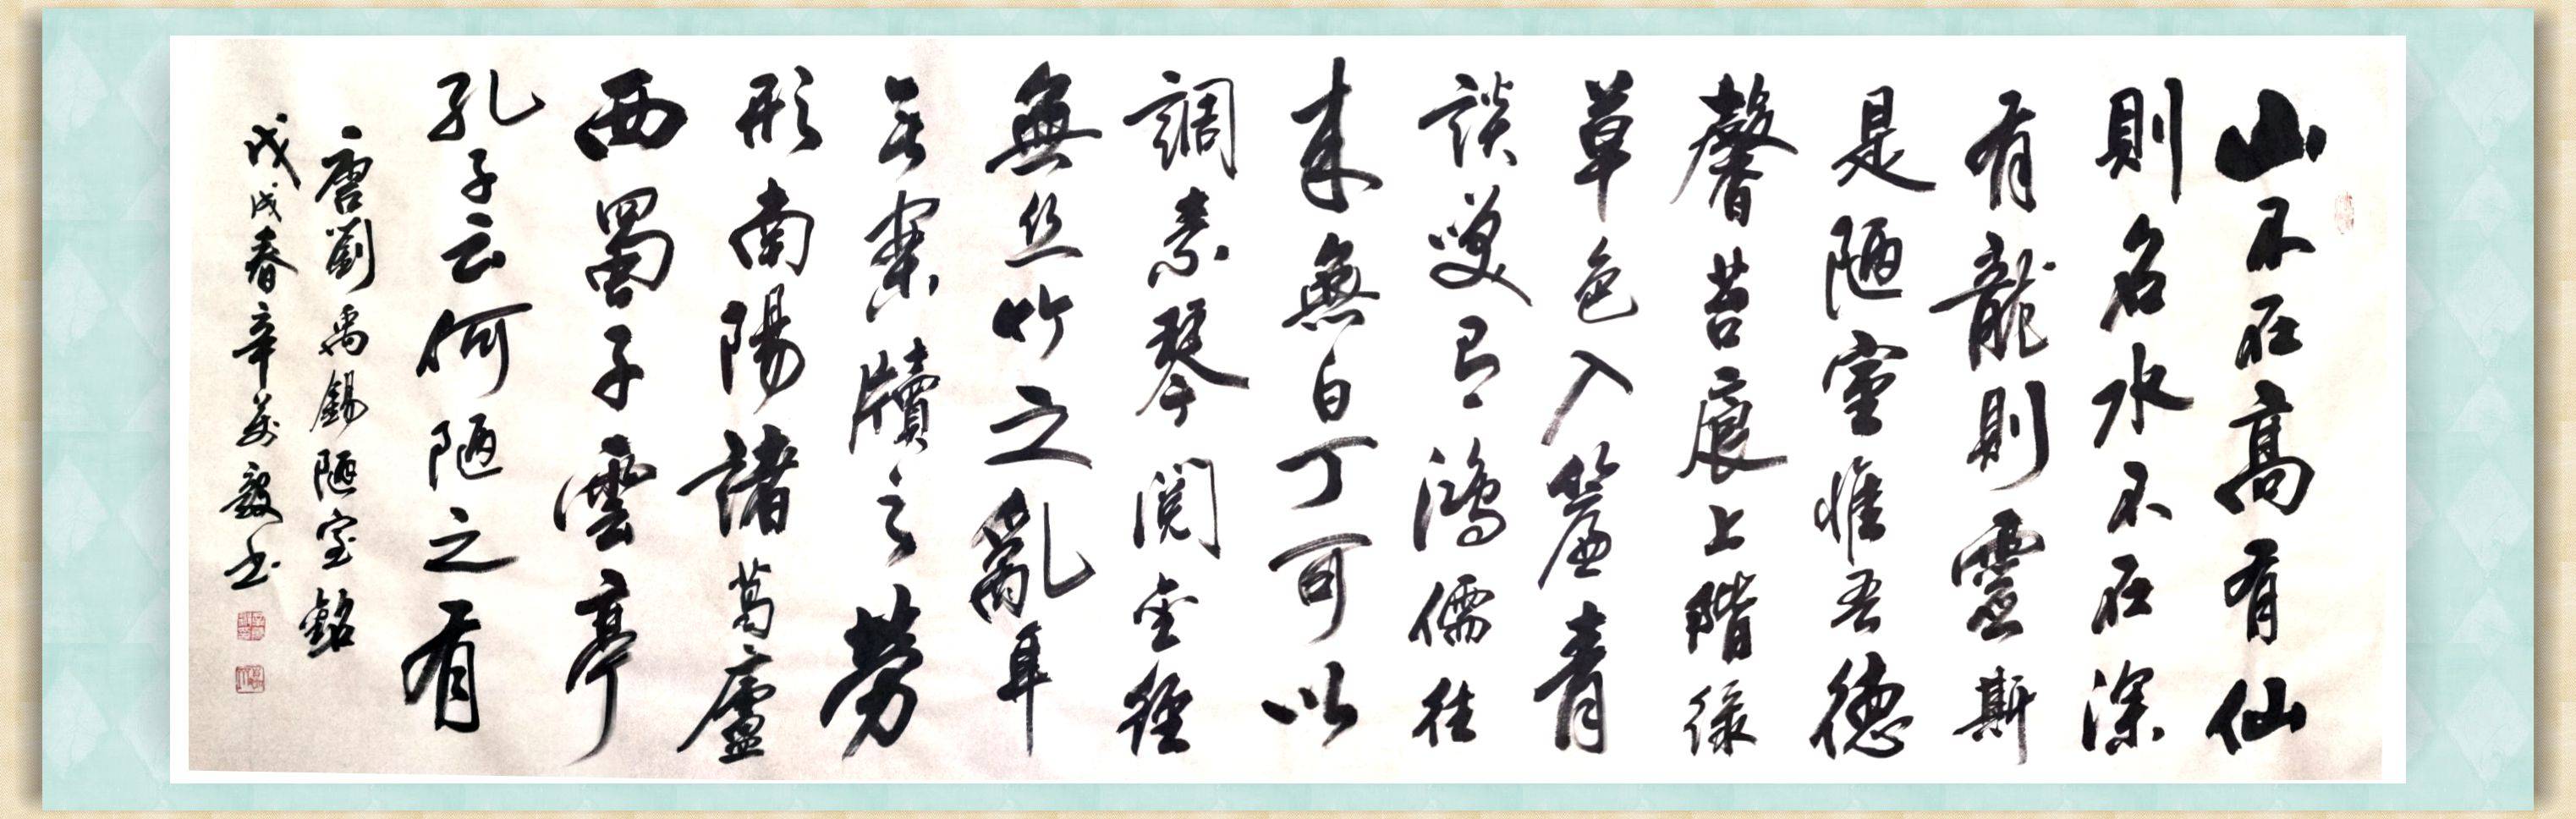 山不在高有仙
則名水不在深
有龍則靈斯
是陋室惟吾德
馨苔痕上階綠
草色入簾青
談笑有鴻儒往
來無白丁可以
調素琴閱金經
無丝竹之亂耳
无案牘之勞
形南陽諸葛廬
西蜀子雲亭
孔子云何陋之有
唐劉禹錫陋室銘
戊戌春辛毅书